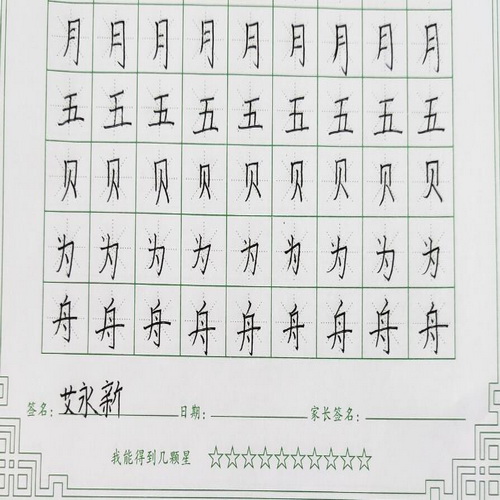 月月月月月月月月月
五五五五五五五五五
贝贝贝贝贝贝贝贝贝
为为为为为为为为为
舟舟舟舟舟舟舟舟舟
签名：艾永新 日期： 家长签名：
我能得到几颗星 ☆☆☆☆☆☆☆☆☆☆